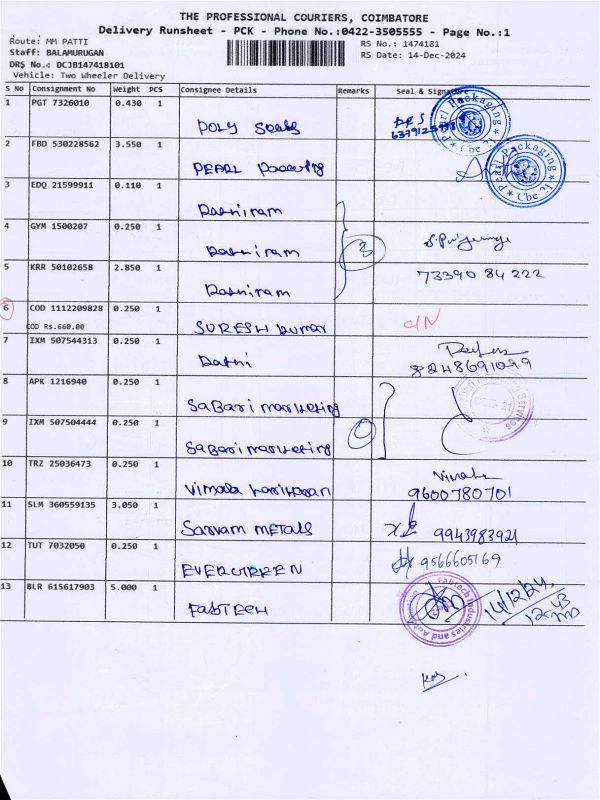 THE PROFESSIONAL COURIERS, COIMBATORE
Delivery Runsheet - PCK - Phone No.:0422-3505555 - Page No.:1
Route: MM PATTI
RS No.: 1474181
Staff: BALAMURUGAN
RS Date: 14-Dec-2024
DRS No.: DCJB147418101
Vehicle: Two Wheeler Delivery
S No Consignment No Weight PCS Consignee Details Remarks Seal & Signature
1 PGT 7326010 0.430 1
POLY Seals
Pearl Packaging Cbe
2 FBD 530228562 3.550 1
PEARL Packaging
Pearl Packaging Cbe
3 EDQ 21599911 0.110 1
Rathiram
4 GYM 1500207 0.250 1
Rathiram 3
5 KRR 50102658 2.850 1 73390 84 222
Rathiram
6 COD 1112209828 0.250 1 C/N
COD Rs.660.00
SURESH Kumar
7 IXM 507544313 0.250 1
Rathi 8248691099
8 APK 1216940 0.250 1
Sabari marketing
9 IXM 507504444 0.250 1
Sabari marketing
10 TRZ 25036473 0.250 1
Vimala Hariharan 9600780701
11 SLM 360559135 3.050 1
Sarvam METALS 9943983921
12 TUT 7032050 0.250 1 9566605169
EVERGREEN
13 BLR 615617903 5.000 1
FabTECH
Fabtech Industries and Automation
14/12/24,
12.43